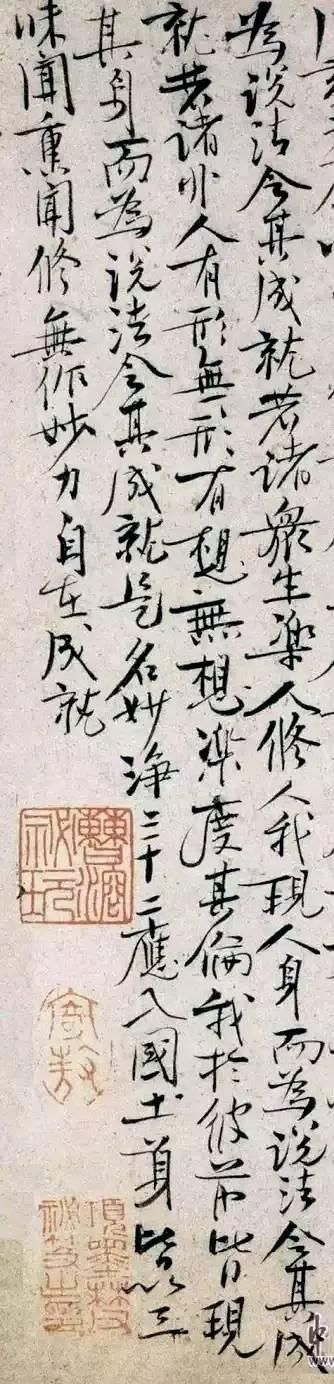 為說法令其成就若諸眾生樂人修人我現人身而為說法令其成
就若諸非人有形無形有想無想樂度其倫我於彼前皆現
其身而為說法令其成就是名妙淨三十二應入國土身皆以三
昧聞熏聞修無作妙力自在成就
曹溶秘玩
項墨林父秘笈之印